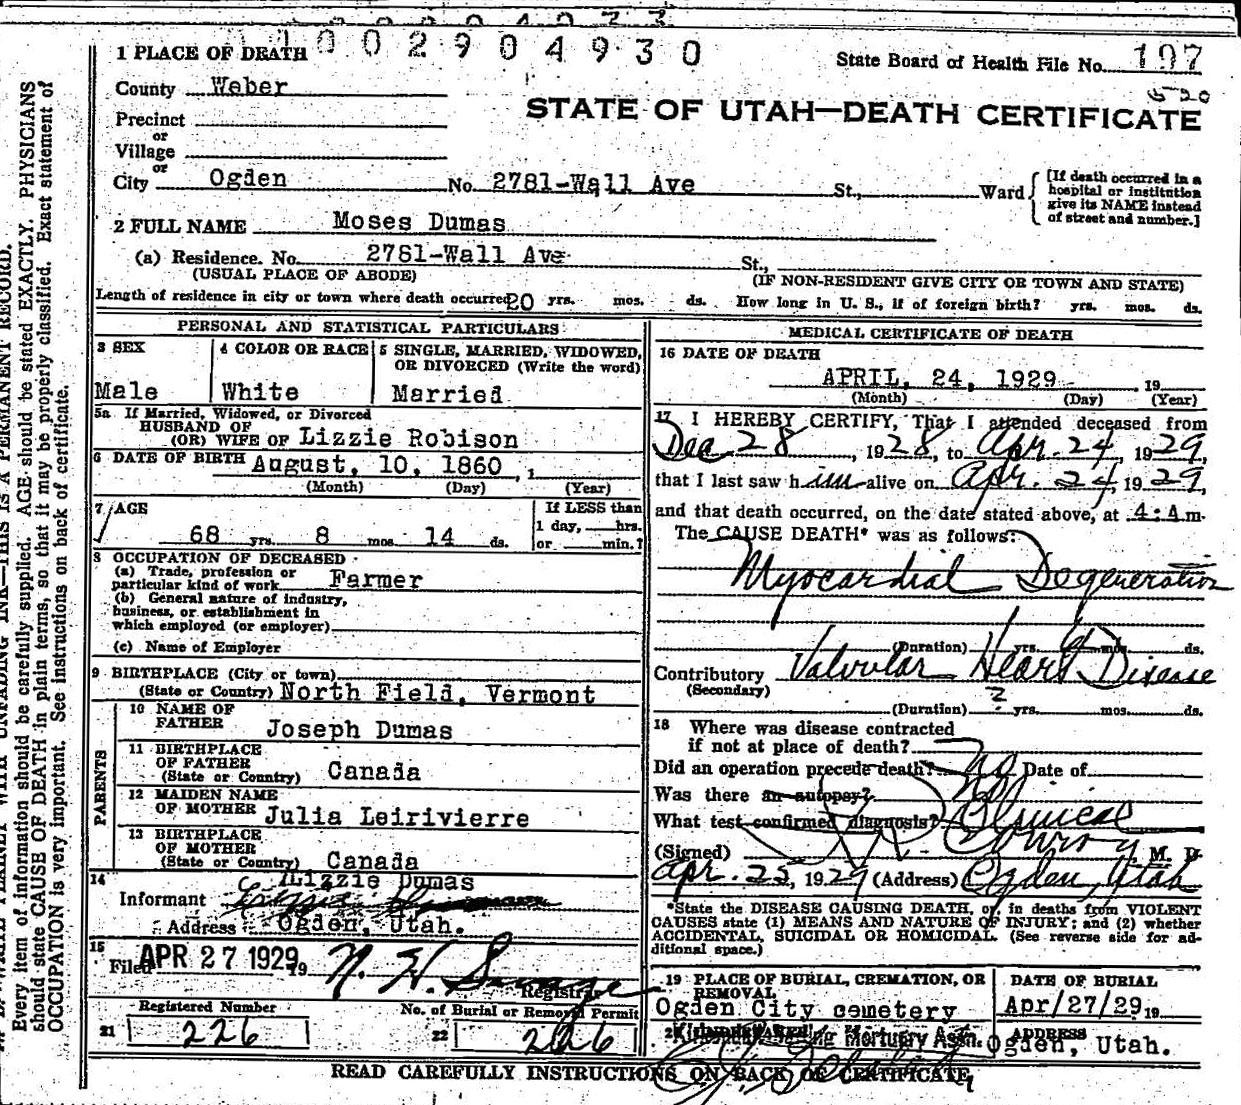 1002904930
1 PLACE OF DEATH
State Board of Health File No. 197
County Weber
STATE OF UTAH—DEATH CERTIFICATE
Precinct
or
Village
or
City Ogden No. 2781-Wall Ave St., Ward
[If death occurred in a hospital or institution give its NAME instead of street and number.]
2 FULL NAME Moses Dumas
(a) Residence. No. 2781-Wall Ave St.,
(USUAL PLACE OF ABODE) (IF NON-RESIDENT GIVE CITY OR TOWN AND STATE)
Length of residence in city or town where death occurred 20 yrs. mos. ds. How long in U. S., if of foreign birth? yrs. mos. ds.
PERSONAL AND STATISTICAL PARTICULARS
3 SEX 4 COLOR OR RACE 5 SINGLE, MARRIED, WIDOWED,
OR DIVORCED (Write the word)
Male White Married
5a If Married, Widowed, or Divorced
HUSBAND OF
(OR) WIFE OF Lizzie Robison
6 DATE OF BIRTH August, 10, 1860 ,
(Month) (Day) (Year)
7 AGE If LESS than
1 day, hrs.
68 yrs. 8 mos. 14 ds. or min.?
8 OCCUPATION OF DECEASED
(a) Trade, profession or
particular kind of work Farmer
(b) General nature of industry,
business, or establishment in
which employed (or employer)
(c) Name of Employer
9 BIRTHPLACE (City or town)
(State or Country) North Field, Vermont
PARENTS
10 NAME OF
FATHER Joseph Dumas
11 BIRTHPLACE
OF FATHER
(State or Country) Canada
12 MAIDEN NAME
OF MOTHER Julia Leirivierre
13 BIRTHPLACE
OF MOTHER
(State or Country) Canada
14 Lizzie Dumas
Informant
Address Ogden, Utah.
15 Filed APR 27 1929 19 N. H. Savage
Registrar
Registered Number No. of Burial or Removal Permit
21 226 22 226
MEDICAL CERTIFICATE OF DEATH
16 DATE OF DEATH
APRIL, 24, 1929 , 19
(Month) (Day) (Year)
17 I HEREBY CERTIFY, That I attended deceased from
Dec. 28, 1928, to Apr. 24, 1929,
that I last saw him alive on Apr. 24, 1929,
and that death occurred, on the date stated above, at 4:A m.
The CAUSE DEATH* was as follows:
Myocardial Degeneration
(Duration) yrs. 6 mos. ds.
Contributory Valvular Heart Disease
(Secondary)
(Duration) ? yrs. mos. ds.
18 Where was disease contracted
if not at place of death?
Did an operation precede death? No Date of
Was there an autopsy? No
What test confirmed diagnosis? Clinical
(Signed) Conroy M. D.
Apr. 25, 1929 (Address) Ogden, Utah
*State the DISEASE CAUSING DEATH, or in deaths from VIOLENT
CAUSES state (1) MEANS AND NATURE OF INJURY; and (2) whether
ACCIDENTAL, SUICIDAL OR HOMICIDAL. (See reverse side for ad-
ditional space.)
19 PLACE OF BURIAL, CREMATION, OR
REMOVAL DATE OF BURIAL
Ogden City cemetery Apr/27/29 19
Mortuary Assn. ADDRESS
Ogden, Utah.
READ CAREFULLY INSTRUCTIONS ON BACK OF CERTIFICATE
Every item of information should be carefully supplied. AGE should be stated EXACTLY. PHYSICIANS
should state CAUSE OF DEATH in plain terms, so that it may be properly classified. Exact statement of
OCCUPATION is very important. See instructions on back of certificate.